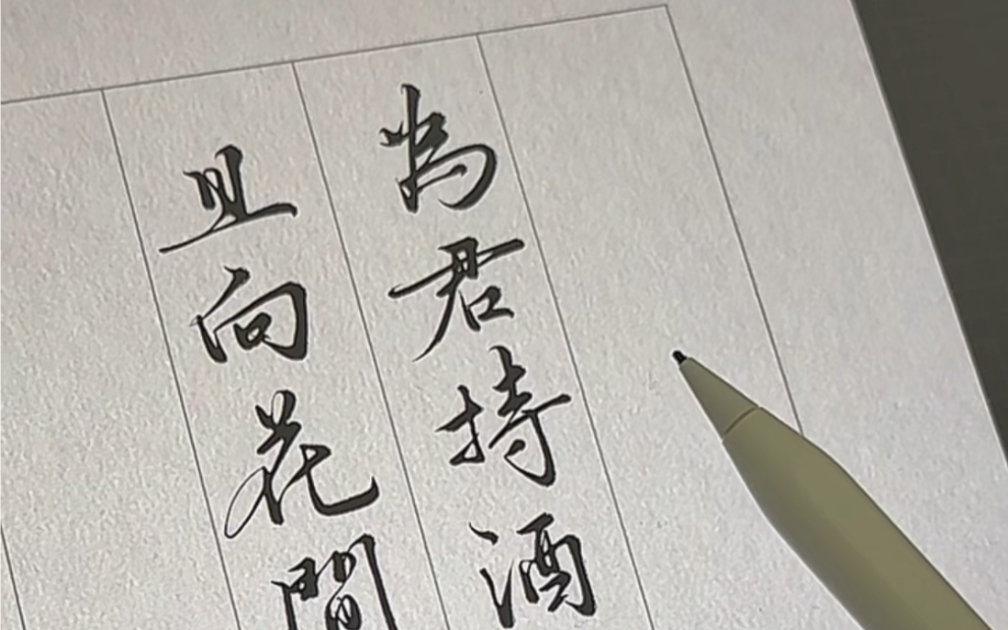 為君持酒
且向花間